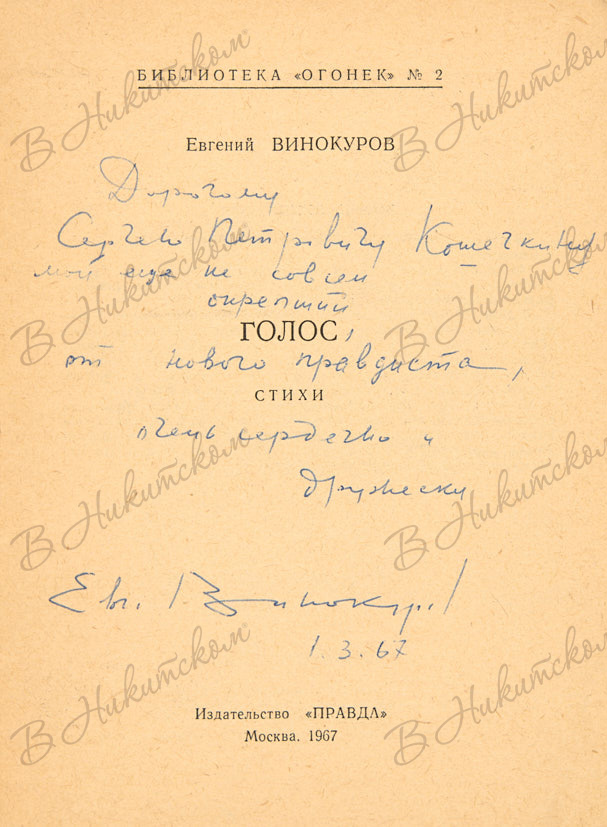 БИБЛИОТЕКА «ОГОНЕК» № 2
Евгений ВИНОКУРОВ
Дорогому
Сергею Петровичу Кошечкину
мой еще не совсем
окрепший
ГОЛОС,
от нового правдиста,
СТИХИ
очень сердечно и
дружески
Евг. Винокуров
1.3.67
Издательство «ПРАВДА»
Москва. 1967
В Никитском
В Никитском
В Никитском
В Никитском
В Никитском
В Никитском
В Никитском
В Никитском